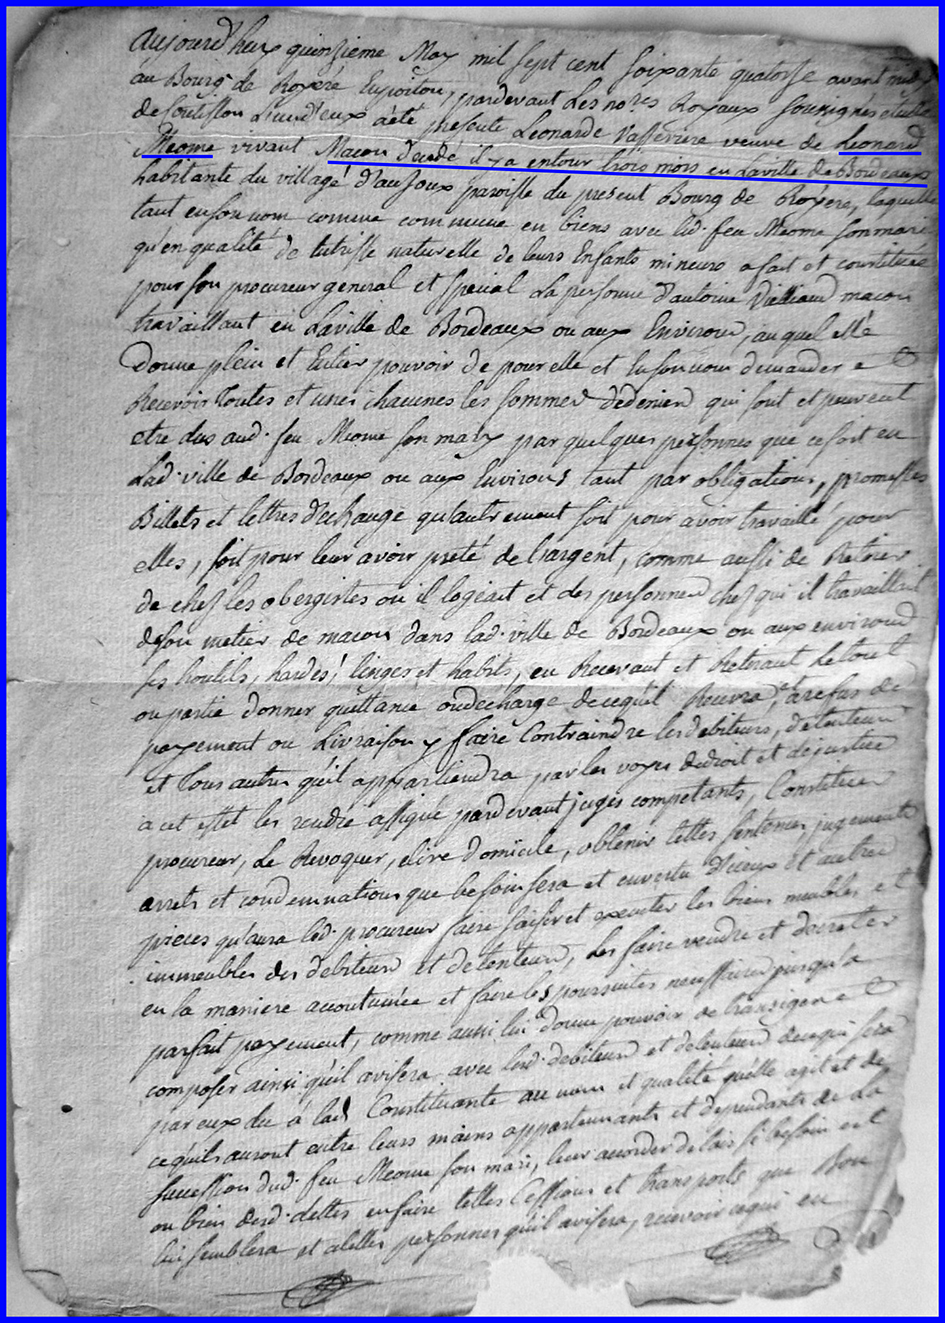 aujourd'huy quinzieme May mil sept cent soixante quatorze avant midy
au Bourg de Royere Enpoitou, pardevant Les nores Royaux soussignés
de l'un d'eux a été presente Léonarde Vasseriere veuve de Leonard
Meome vivant Macon decedé il y a entour trois mois en Laville de Bordeaux
habitante du village d'auzoux paroisse du present Bourg de Royere, laquelle
tant en son nom comme commune en biens avec led. feu Meome son mari
qu'en qualité de tutrisse naturelle de leurs Enfants mineurs a fait et constitué
pour son procureur general et special La personne d'antoine Vialliaud macon
travaillant en Laville de Bordeaux ou aux Environs, auquel elle
Donne plein et Entier pouvoir de pour elle et En son nom demander e
Recevoir Toutes et unes chacunes les sommes de deniers qui sont et peuvent
etre dus aud. feu Meome son mary par quelques personnes que ce soit en
Lad. ville de Bordeaux ou aux Environs tant par obligations, promesses
Billets et lettres d'echange qu'autrement soit pour avoir travaillé pour
elles, soit pour leur avoir preté de l'argent, comme aussi de Retirer
de chez les obergistes ou il logeait et des personnes chez qui il travaillait
de son metier de macon dans lad. ville de Bordeaux ou aux environs
ses houtils, hardes, linges et habits, en Recevant et Retirant Le tout
ou partie donner quittance ou decharge de ce qu'il Recevra, et a refus de
payement ou Livraison y faire Contraindre les debiteurs, detenteurs
et Tous autres qu'il appartiendra par les voyes de droit et de justice
a cet effet les rendre assigné pardevant juges competants, Constituer
procureur, Le Revoquer, elire domicile, obtenir telles sentences, jugements
arrets et condemnations que besoin sera et en vertu d'iceux et autres
pieces qu'aura led. procureur faire saisir et executer les biens meubles et
immeubles des debiteurs et detenteurs, les faire vendre et decreter
en la maniere accoutumée et faire les poursuites necessaires jusqu'a
parfait payement, comme aussi lui donne pouvoir de transiger e
composer ainsi qu'il avisera avec lesd. debiteurs et detenteurs de ce qui sera
par eux du à lad. Constituante au nom et qualité qu'elle agit et de
ce qu'ils auront entre leurs mains appartenants et dependants de La
succession dud. feu Meome son mari, leur accorder delais si besoin est
ou bien desd. dettes en faire telles Cessions et transports que Bon
lui semblera et a telles personnes qu'il avisera, recevoir ce qui en